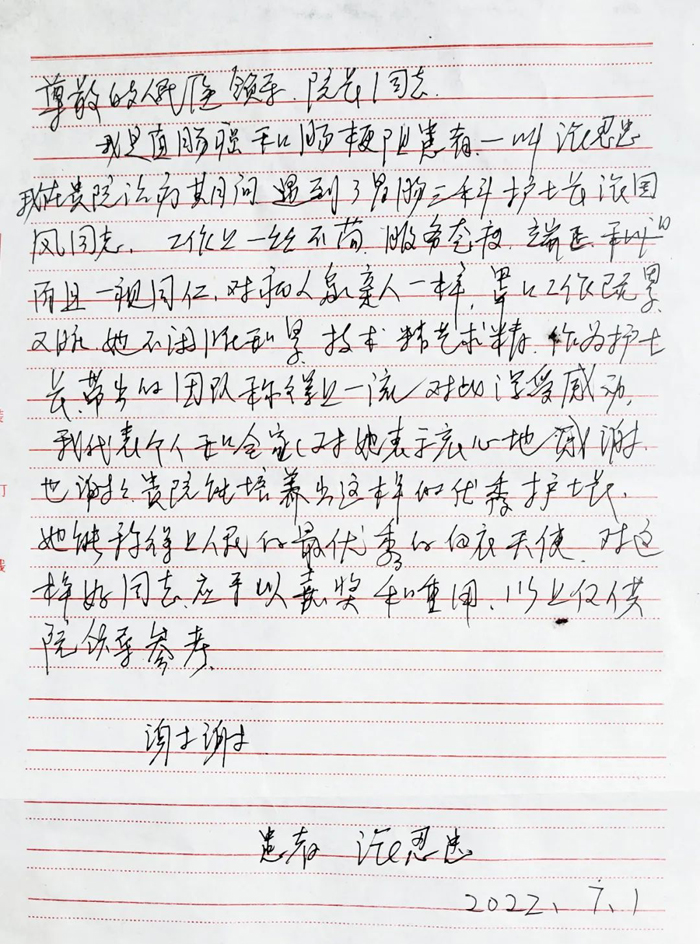 尊敬的人民医领导、院长同志
我是直肠癌和肠梗阻患者一叫
我在贵院治病其间遇到了胃肠三科护士长 国
凤同志,工作上一丝不苟,服务态度,端正
而且一视同仁,对病人象亲人一样,工作既累
又脏她不 累技术精艺求精.作为护士
长,带出的团队称得上一流,对此深受感动,
我代表个人和全家对她表示衷心地感谢.
也谢谢贵院能培养出这样的优秀护士长.
她能称得上人民的最优秀的白衣天使.对这
样好同志,应予以嘉奖和重用,以上仅供
院领导参考.
谢谢
患者
2022、7、1